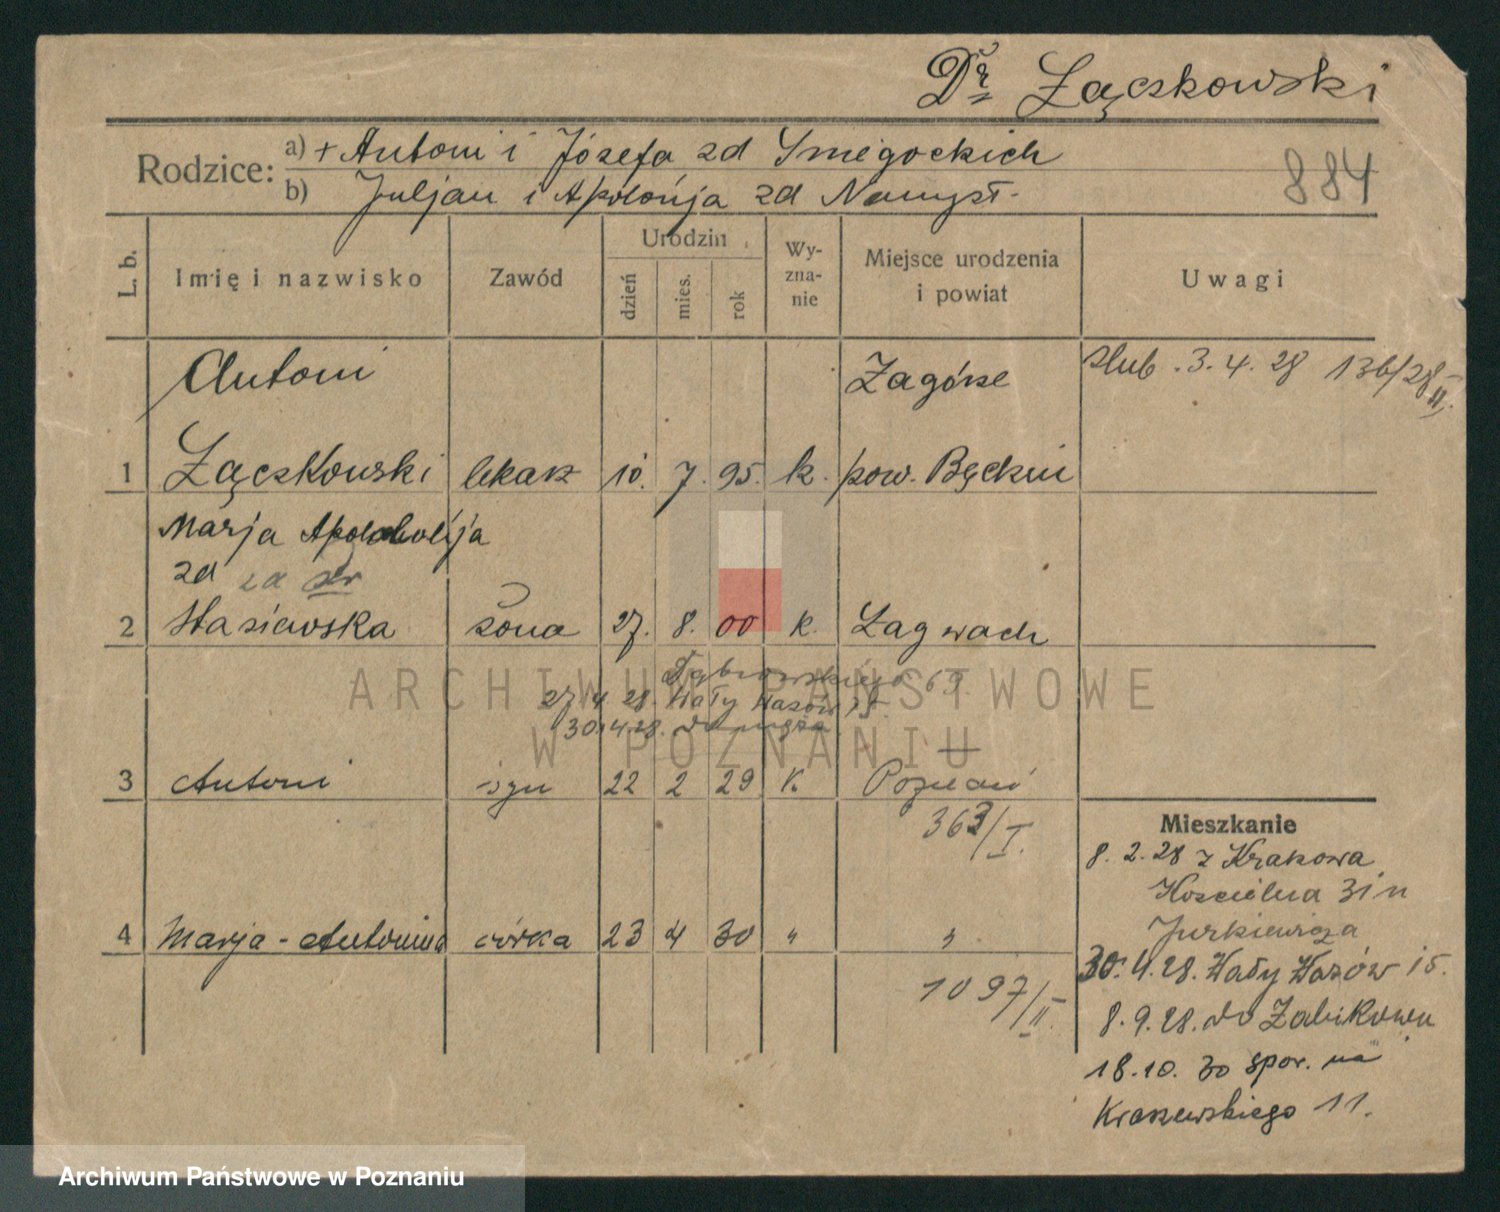 Dr Łączkowski
Rodzice: a) + Antoni i Józefa zd Smegockich
b) Juljan i Apolonja zd Namysł.
884
L. b.
Imię i nazwisko
Zawód
Urodzin
dzień
mies.
rok
Wy-
zna-
nie
Miejsce urodzenia
i powiat
Uwagi
Antoni Zagórze ślub. 3. 4. 28 136/28 II.
1 Łączkowski lekarz 10. 7. 95. k. pow. Będzin
Marja
zd zd
2 Stasiewska żona 27. 8. 00 k. Łagwach
Dąbrowskiego 69
27 4 28. Wały Wazów 15.
30.4.28.
3 Antoni syn 22 2 29 k. Poznań
363/I.
4 Marja-Antonina córka 23 4 30 " "
1097/II.
Mieszkanie
8. 2. 28 z Krakowa
Kościelna 31 u
Jurkiewicza
30. 4. 28. Wały Wazów 15.
8. 9. 28. do Żabikowa
18. 10. 30 spor. na
Kraszewskiego 11.
ARCHIWUM PAŃSTWOWE
W POZNANIU
Archiwum Państwowe w Poznaniu